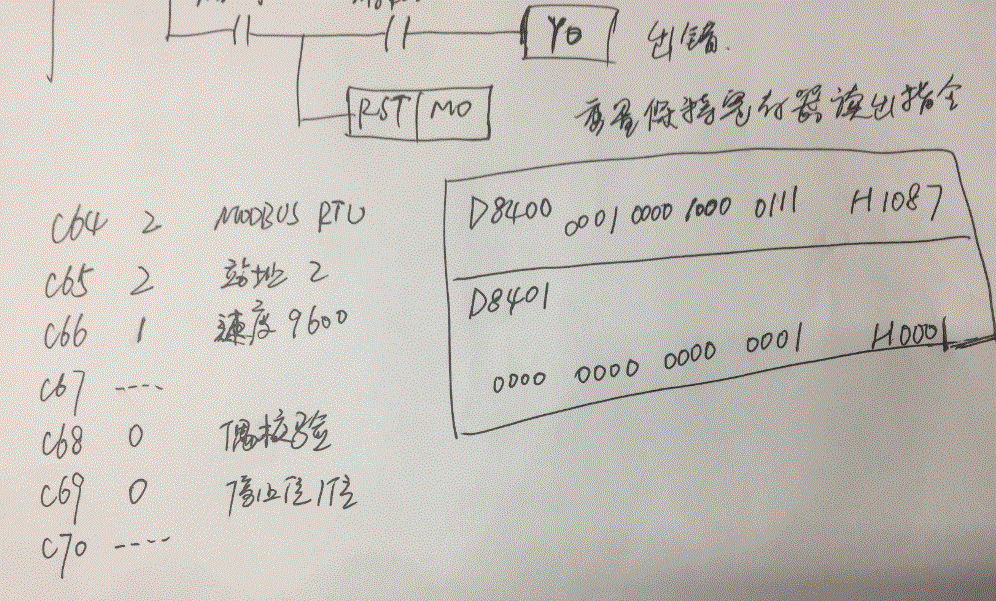 Y0 出错.
RST M0
变量保持寄存器读出指令
D8400 0001 0000 1000 0111 H1087
D8401
0000 0000 0000 0001 H0001
C64 2 MODBUS RTU
C65 2 站地址 2
C66 1 速度 9600
C67 ----
C68 0 偶校验
C69 0 停止位1位
C70 ----